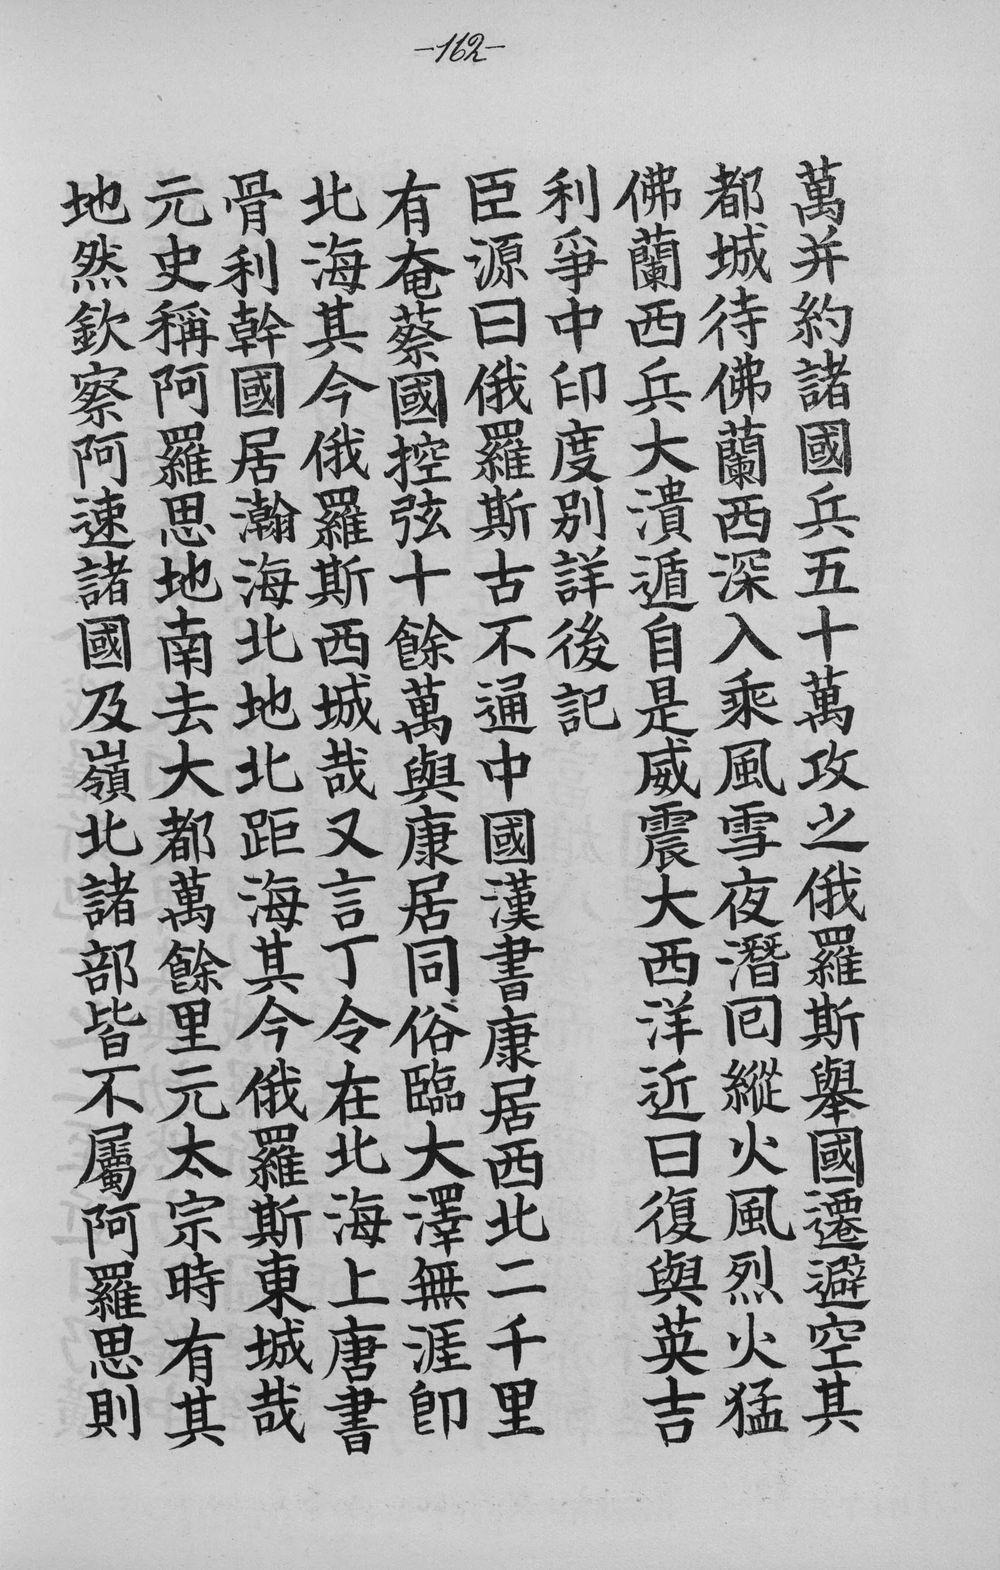 -162-
萬并約諸國兵五十萬攻之俄羅斯舉國遷避空其
都城待佛蘭西深入乘風雪夜潛回縱火風烈火猛
佛蘭西兵大潰遁自是威震大西洋近日復與英吉
利爭中印度別詳後記
臣源曰俄羅斯古不通中國漢書康居西北二千里
有奄蔡國控弦十餘萬與康居同俗臨大澤無涯卽
北海其今俄羅斯西城哉又言丁令在北海上唐書
骨利幹國居瀚海北地北距海其今俄羅斯東城哉
元史稱阿羅思地南去大都萬餘里元太宗時有其
地然欽察阿速諸國及嶺北諸部皆不屬阿羅思則